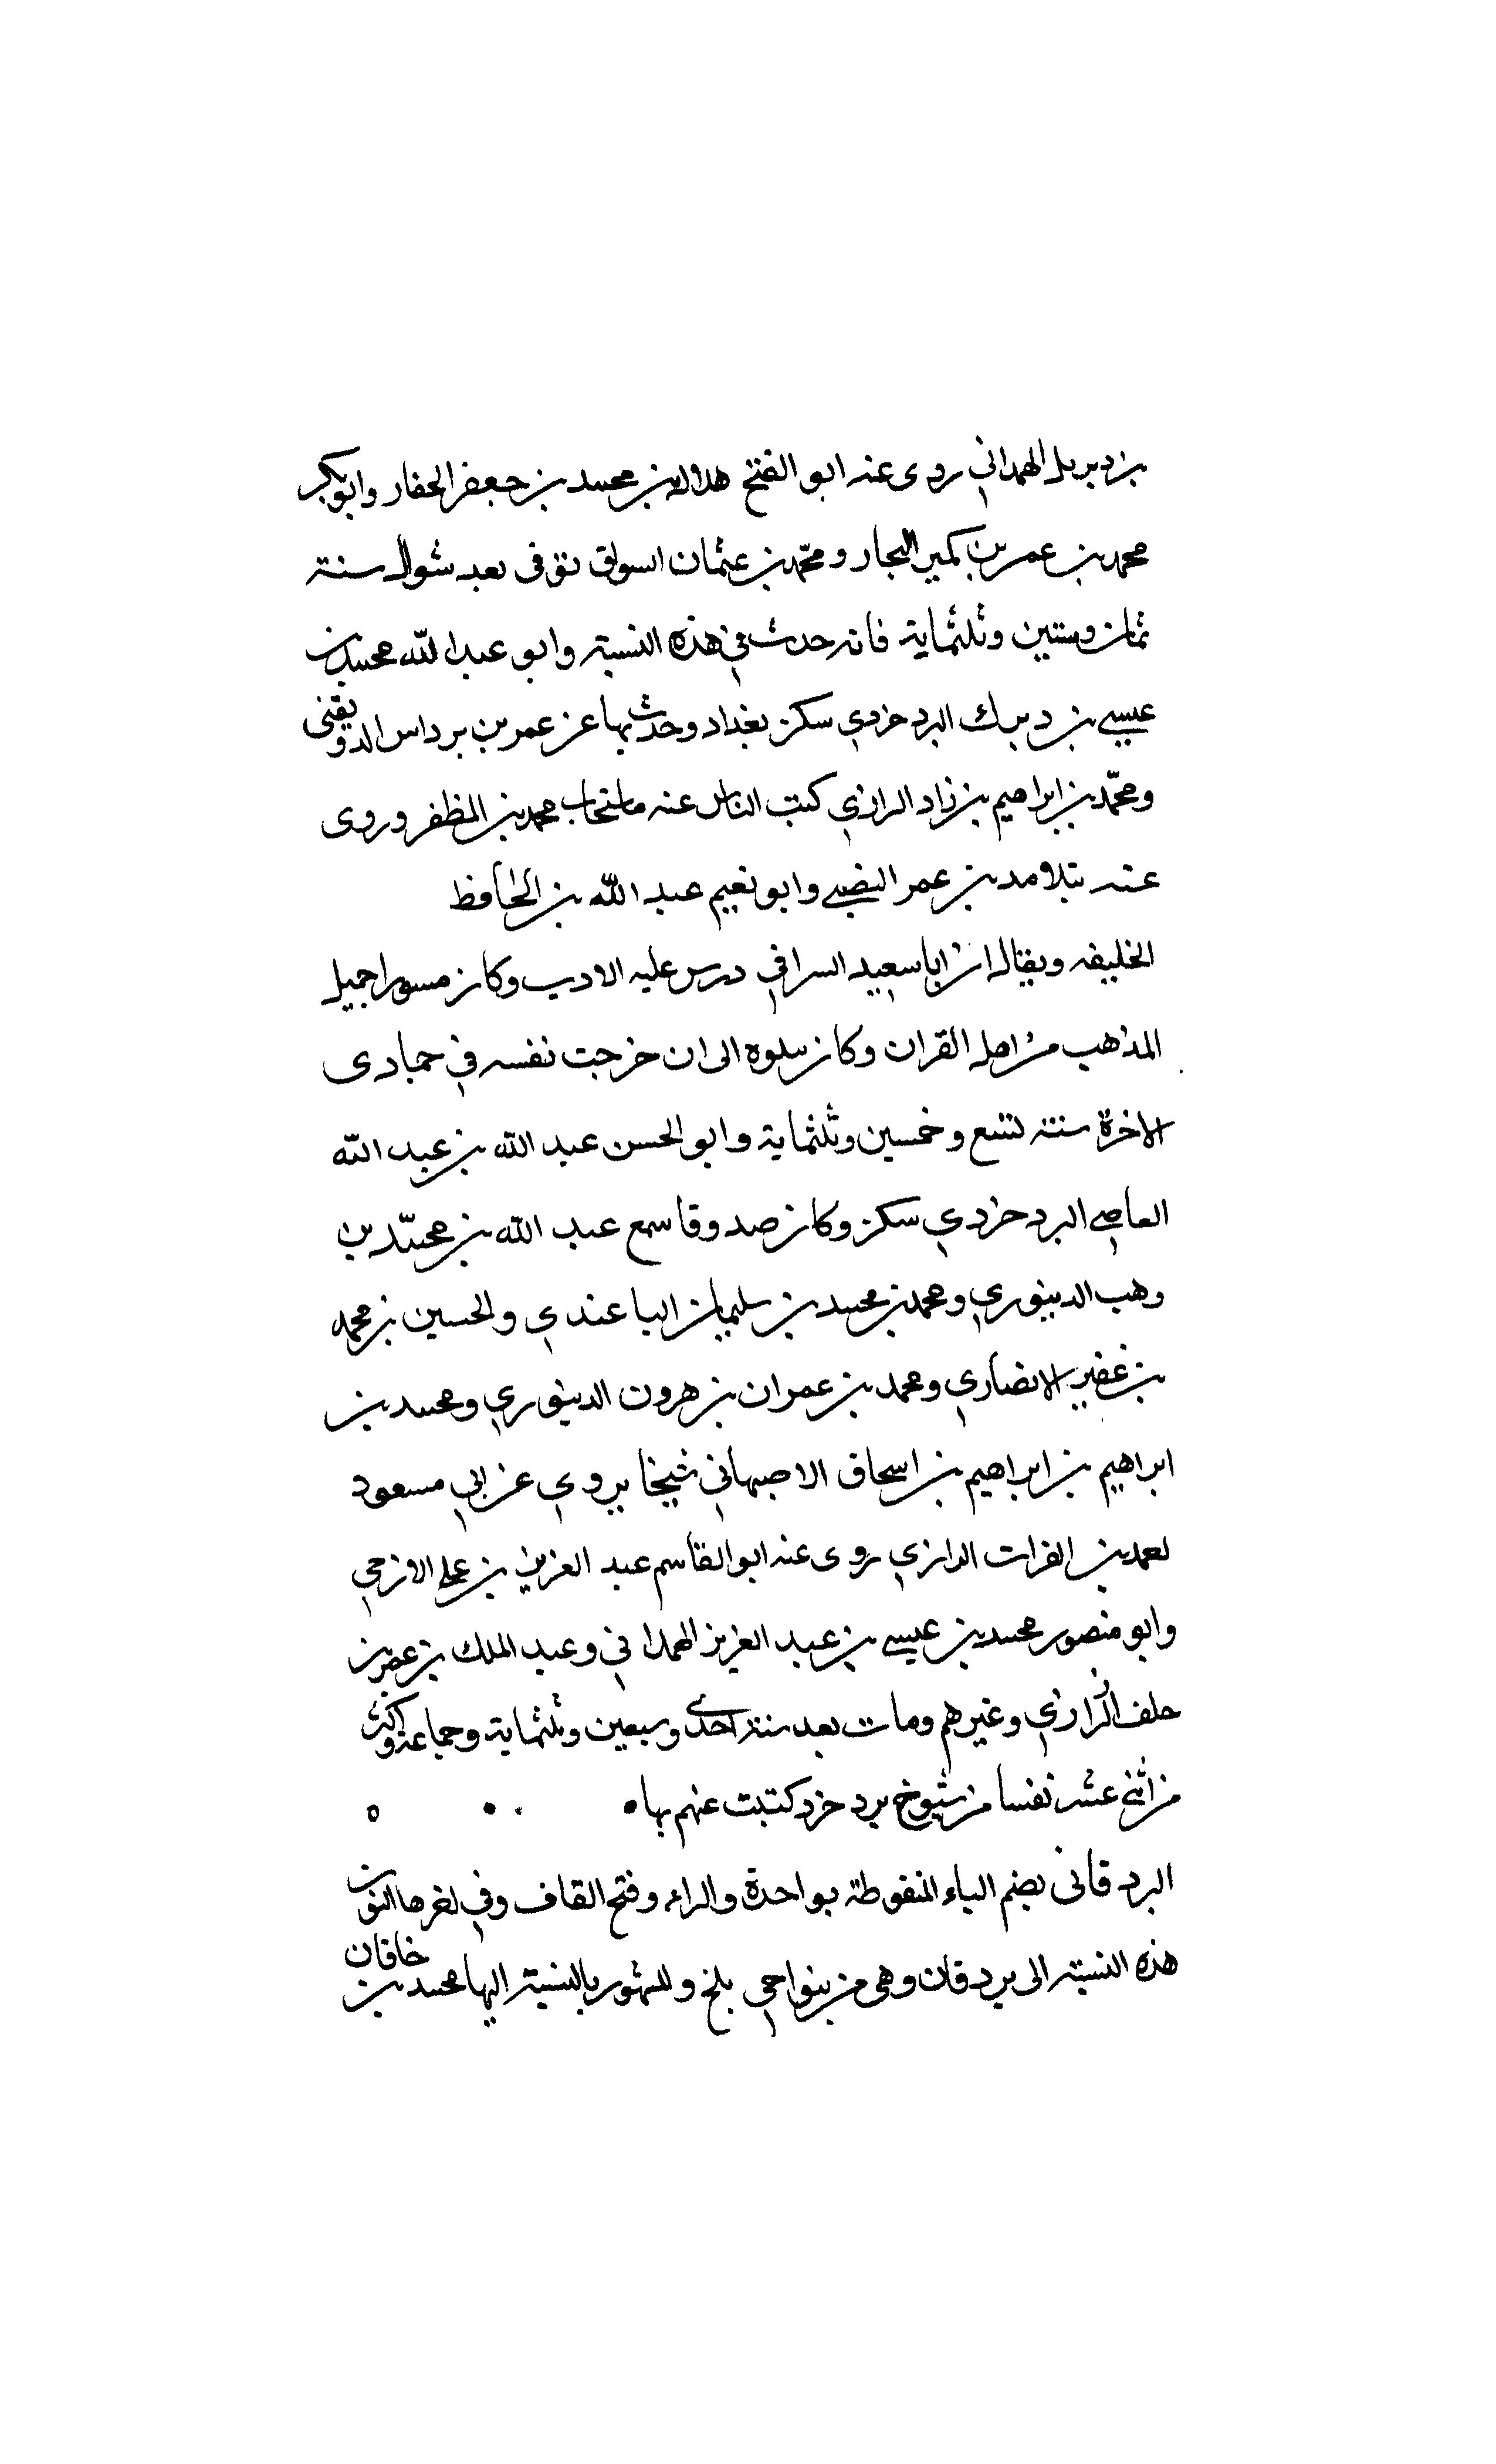 بن ديزيل الهمداني روى عنه ابو الفتح هلال بن محمد بن جعفر الحفار وابو بكر
محمد بن عمر بن بكير النجار ومحمد بن عثمان السواق توفى بعد شوال سنة
ثمان وستين وثلثماية فانه حدث في هذه النسبة وابو عبد الله محمد بن
عيسى بن ديزك البردجردي سكن بغداد وحدث بها عن عمر بن مرداس الدونقى
ومحمد بن ابراهيم بن زياد الرازي كتب الناس عنه بانتخاب محمد بن المظفر وروى
عنه محمد بن عمر وابو نعيم عبد الله بن الحافظ
الخليفه ويقال ان ابا سعيد السرافي درس عليه الادب وكان مستورا جميل
المذهب من اهل القران وكان يتلوه الى ان خرجت نفسه في جمادى
الاخرة سنة تسع وخمسين وثلثماية وابو الحسن عبد الله بن عبد الله
القاضي البردجردي سكن وكان صدوقا سمع عبد الله بن محمد بن
وهب الدينوري ومحمد بن محمد بن سليمان الباغندي والحسين بن محمد
بن غفير الانصاري ومحمد بن عمران بن هرون الدينوري ومحمد بن
ابراهيم بن ابراهيم بن اسحاق الاصبهاني شيخا يروي عن ابي مسعود
احمد بن الفرات الرازي روى عنه ابو القاسم عبد العزيز بن علي الازجي
وابو منصور محمد بن عيسى بن عبد العزيز الهمداني وعبد الملك بن عمر بن
خلف الرزاز وغيرهم ومات بعد سنة احدى وسبعين وثلثماية وجماعة اكثر
من اثني عشر نفسا من شيوخ بردجرد كتبت عنهم بها
البردقانى بضم الباء المنقوطة بواحدة والراء وفتح القاف وفي اخرها النون
هذه النسبة الى بردقان وهى من نواحي بلخ والمشهور بالنسبة اليها محمد بن خاقان